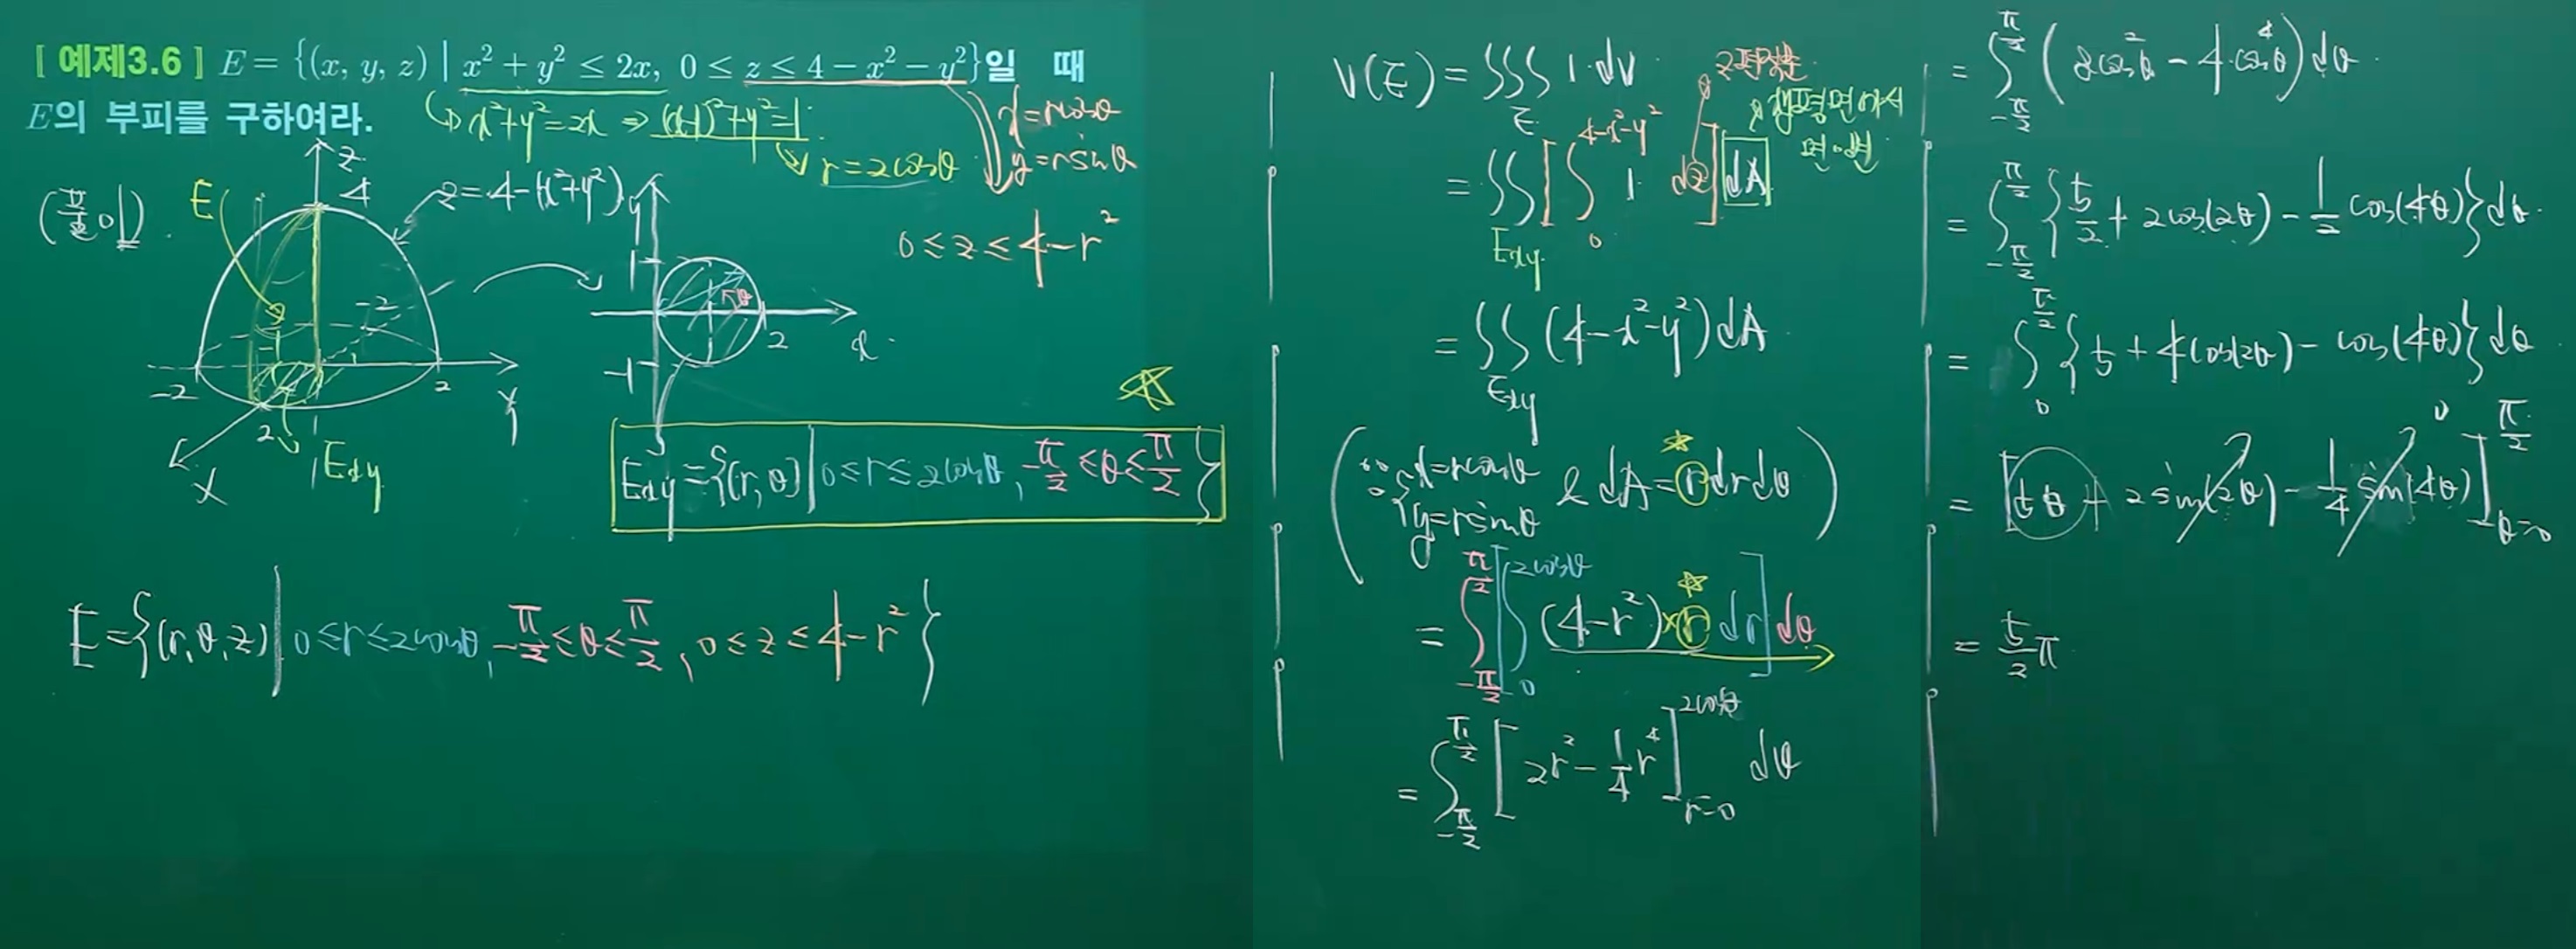 [ 예제3.6 ] E = {(x, y, z) | x² + y² ≤ 2x, 0 ≤ z ≤ 4 − x² − y²}일 때
E의 부피를 구하여라.
↳ x²+y²=2x ⇒ (x-1)²+y²=1
↳ r=2cosθ
x=rcosθ
y=rsinθ
0 ≤ z ≤ 4-r²
(풀이).
E
z
4
z=4-(x²+y²)
-2
-2
2
y
2
x
Exy
y
1
θ
2
x
-1
Exy={(r,θ)|0≤r≤2cosθ, -π/2≤θ≤π/2}
E={(r,θ,z)|0≤r≤2cosθ, -π/2≤θ≤π/2, 0≤z≤4-r²}
V(E)=∭_E 1·dV
=∬_Exy [∫_0^{4-x²-y²} 1 dz] dA
=∬_Exy (4-x²-y²)dA
(∵ {x=rcosθ y=rsinθ & dA=rdrdθ)
=∫_{-π/2}^{π/2} [∫_0^{2cosθ} (4-r²)×r dr] dθ
=∫_{-π/2}^{π/2} [2r²-1/4 r⁴]_{r=0}^{2cosθ} dθ
=∫_{-π/2}^{π/2} (8cos²θ-4cos⁴θ)dθ
=∫_{-π/2}^{π/2} {5/2+2cos(2θ)-1/2 cos(4θ)}dθ
=∫_0^{π/2} {5+4cos(2θ)-cos(4θ)}dθ
=[5θ+2sin(2θ)-1/4 sin(4θ)]_{θ=0}^{π/2}
0
=5/2 π